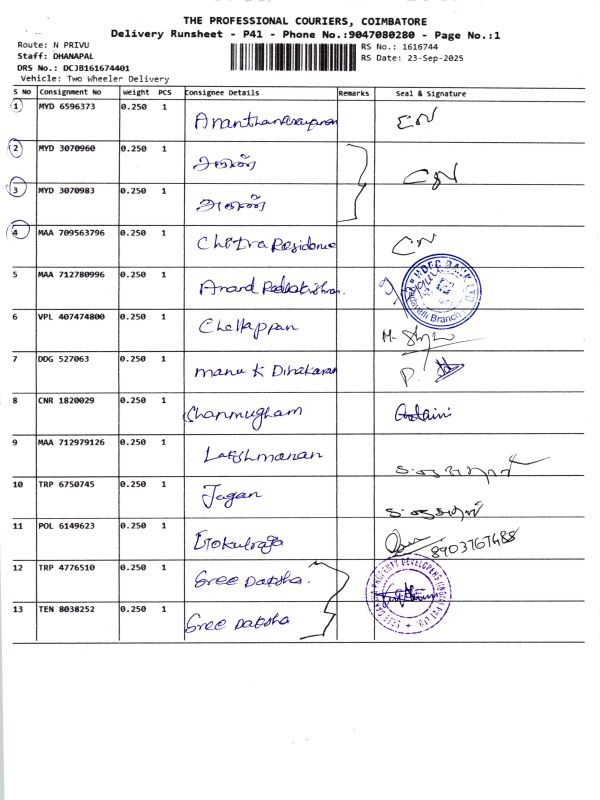 THE PROFESSIONAL COURIERS, COIMBATORE
Delivery Runsheet - P41 - Phone No.:9047080280 - Page No.:1
Route: N PRIVU
Staff: DHANAPAL
DRS No.: DCJB161674401
Vehicle: Two Wheeler Delivery
RS No.: 1616744
RS Date: 23-Sep-2025
S No Consignment No Weight PCS Consignee Details Remarks Seal & Signature
1 MYD 6596373 0.250 1 Ananthanarayanan CN
2 MYD 3070960 0.250 1 அருண் CN
3 MYD 3070983 0.250 1 அருண்
4 MAA 709563796 0.250 1 Chitra Residence CN
5 MAA 712780996 0.250 1 Anand Radhakrishnan. HDFC BANK LTD Branch
6 VPL 407474800 0.250 1 Chellappan
7 DDG 527063 0.250 1 Manu K Dinakaran P.
8 CNR 1820029 0.250 1 Shanmugham
9 MAA 712979126 0.250 1 Lakshmanan
10 TRP 6750745 0.250 1 Jagan
11 POL 6149623 0.250 1 Gokulraja 8903767488
12 TRP 4776510 0.250 1 Sree Daksha. PROPERTY DEVELOPERS (INDIA) PVT LTD
13 TEN 8038252 0.250 1 Sree Daksha